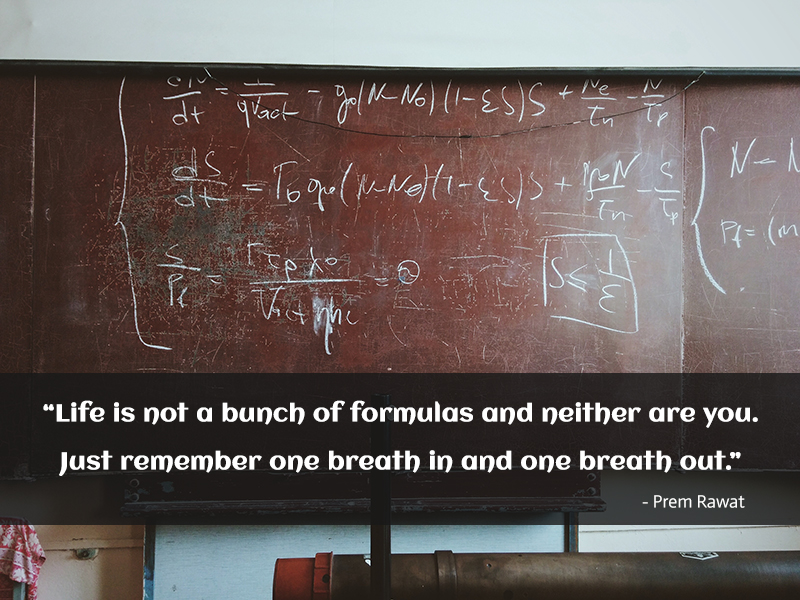 dt = qVact - go(N-No)(1-εS)S + Ne/τn - N/τp
dS/dt = (N-No)(1-εS)S + N/τn - S/τp
S/Pf = =
S ≤ 1/ε
N -
Pf = (m
“Life is not a bunch of formulas and neither are you.
Just remember one breath in and one breath out.”
- Prem Rawat